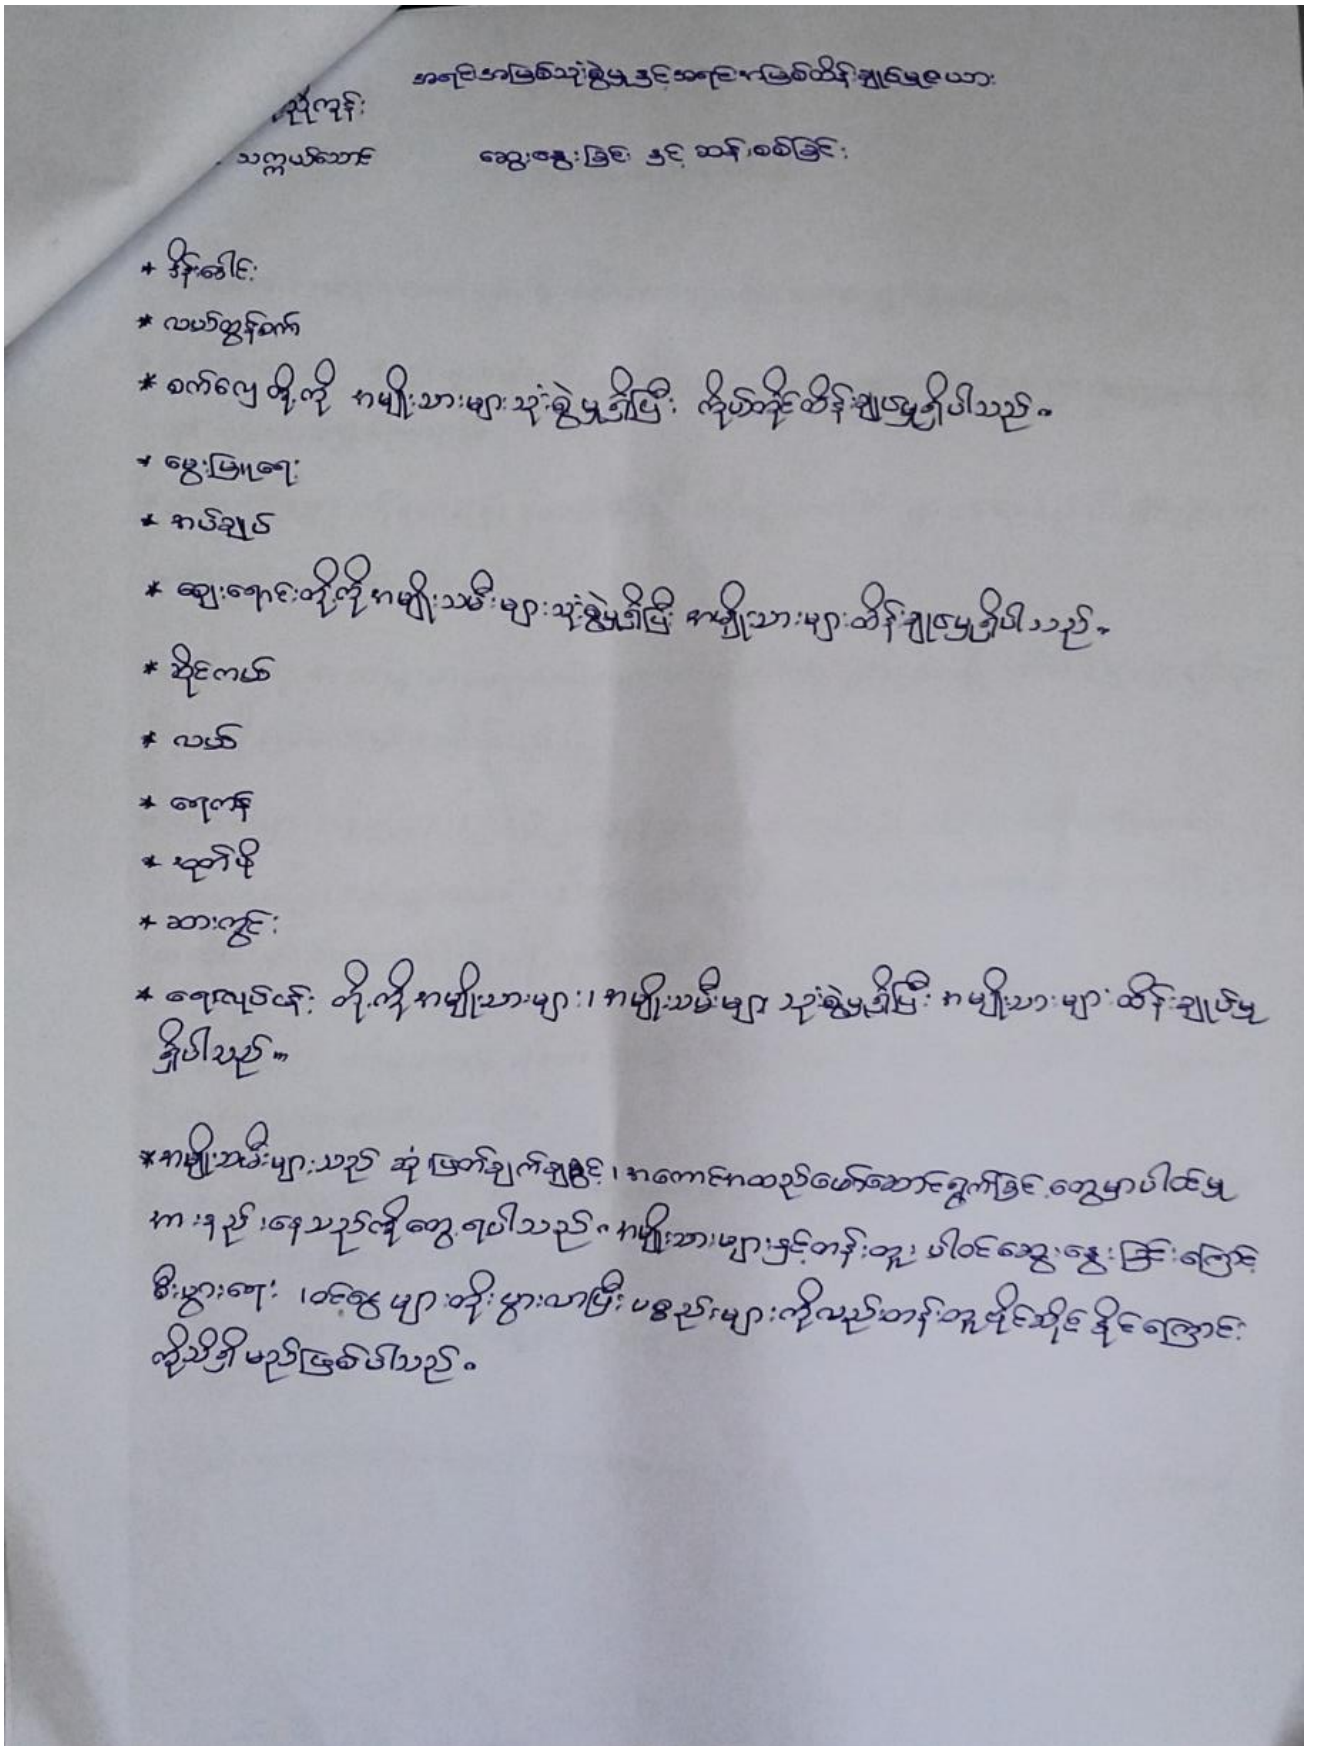 အရင်းအမြစ်သုံးစွဲမှုနှင့်အရင်းအမြစ်ထိန်းချုပ်မှုဇယား
ညိုကုန်း
သက္ကယ်သောင် ဆွေးနွေးခြင်း နှင့် ဆန်းစစ်ခြင်း
* ဒိန်းခေါင်း
* လယ်ထွန်စက်
* စက်လှေ တို့ကို အမျိုးသားများသုံးစွဲမှုရှိပြီး ကိုယ်တိုင်ထိန်းချုပ်မှုရှိပါသည်။
* မွေးမြူရေး
* အပ်ချုပ်
* ဈေးရောင်းတို့ကိုအမျိုးသမီးများသုံးစွဲမှုရှိပြီး အမျိုးသားများထိန်းချုပ်မှုရှိပါသည်။
* ဆိုင်ကယ်
* လယ်
* ရေကန်
* အုတ်ဖို
* ဆားကွင်း
* ရေလုပ်ငန်း တို့ကိုအမျိုးသားများ၊ အမျိုးသမီးများ သုံးစွဲမှုရှိပြီး အမျိုးသားများထိန်းချုပ်မှု
ရှိပါသည်။
* အမျိုးသမီးများသည် ဆုံးဖြတ်ချက်ချခွင့်၊ အကောင်အထည်ဖော်ဆောင်ရွက်ခြင်းတွေမှာပါဝင်မှု
အားနည်းနေသည်ကိုတွေ့ရပါသည်။ အမျိုးသားများနှင့်တန်းတူ ပါဝင်ဆွေးနွေးခြင်းကြောင့်
စီးပွားရေး ၊ဝင်ငွေများတိုးပွားလာပြီး ပစ္စည်းများကိုလည်းတန်းတူပိုင်ဆိုင်နိုင်ကြောင်း
ကိုသိရှိမည်ဖြစ်ပါသည်။